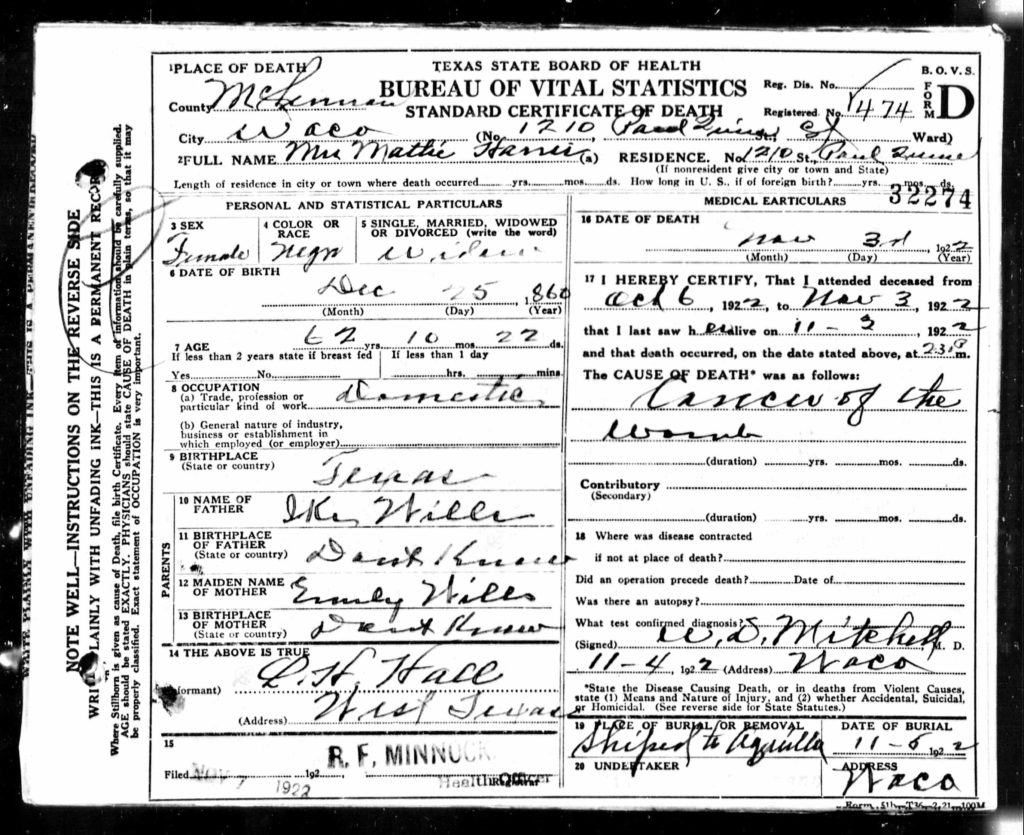 TEXAS STATE BOARD OF HEALTH
BUREAU OF VITAL STATISTICS
STANDARD CERTIFICATE OF DEATH
B. O. V. S.
FORM D
Reg. Dis. No.
Registered No. 1474
1 PLACE OF DEATH
County McLennan
City Waco (No. 1210 Paul Quinn St., Ward)
2 FULL NAME Mrs Mattie Harris (a) RESIDENCE. No. 1210 St., Paul Quinn
(If nonresident give city or town and State)
Length of residence in city or town where death occurred yrs. mos. ds. How long in U. S., if of foreign birth? yrs. mos. ds.
32274
PERSONAL AND STATISTICAL PARTICULARS
3 SEX
Female
4 COLOR OR RACE
Negro
5 SINGLE, MARRIED, WIDOWED OR DIVORCED (write the word)
Widow
6 DATE OF BIRTH
Dec 25, 1860
(Month) (Day) (Year)
7 AGE
62 yrs. 10 mos. 22 ds.
If less than 2 years state if breast fed
Yes No
If less than 1 day
hrs. mins.
8 OCCUPATION
(a) Trade, profession or
particular kind of work Domestic
(b) General nature of industry,
business or establishment in
which employed (or employer)
9 BIRTHPLACE
(State or country)
Texas
PARENTS
10 NAME OF FATHER
Ike Wills
11 BIRTHPLACE OF FATHER
(State or country)
Dont Know
12 MAIDEN NAME OF MOTHER
Emily Wills
13 BIRTHPLACE OF MOTHER
(State or country)
Dont Know
14 THE ABOVE IS TRUE
(Informant) D. H. Hall
(Address) West Texas
15
Filed Nov 7 1922 192
R. F. MINNOCK
Health Officer
Registrar
MEDICAL EARTICULARS
16 DATE OF DEATH
Nov 3rd 1922
(Month) (Day) (Year)
17 I HEREBY CERTIFY, That I attended deceased from
Oct 6, 1922, to Nov 3, 1922
that I last saw her alive on 11-3, 1922
and that death occurred, on the date stated above, at 230 P m.
The CAUSE OF DEATH* was as follows:
Cancer of the
womb
(duration) yrs. mos. ds.
Contributory
(Secondary)
(duration) yrs. mos. ds.
18 Where was disease contracted
if not at place of death?
Did an operation precede death? Date of
Was there an autopsy?
What test confirmed diagnosis?
(Signed) W. D. Mitchell M. D.
11-4 1922 (Address) Waco
*State the Disease Causing Death, or in deaths from Violent Causes,
state (1) Means and Nature of Injury, and (2) whether Accidental, Suicidal,
or Homicidal. (See reverse side for State Statutes.)
19 PLACE OF BURIAL OR REMOVAL
Shiped to Aquilla
DATE OF BURIAL
11-5 1922
20 UNDERTAKER
ADDRESS
Waco
Form 51b-T36-2,21-100M
WRITE PLAINLY WITH UNFADING INK—THIS IS A PERMANENT RECORD
NOTE WELL—INSTRUCTIONS ON THE REVERSE SIDE
WRITE PLAINLY WITH UNFADING INK—THIS IS A PERMANENT RECORD
Where Stillborn is given as cause of Death, file birth Certificate. Every Item of information should be carefully supplied.
AGE should be stated EXACTLY. PHYSICIANS should state CAUSE OF DEATH in plain terms, so that it may
be properly classified. Exact statement of OCCUPATION is very important.